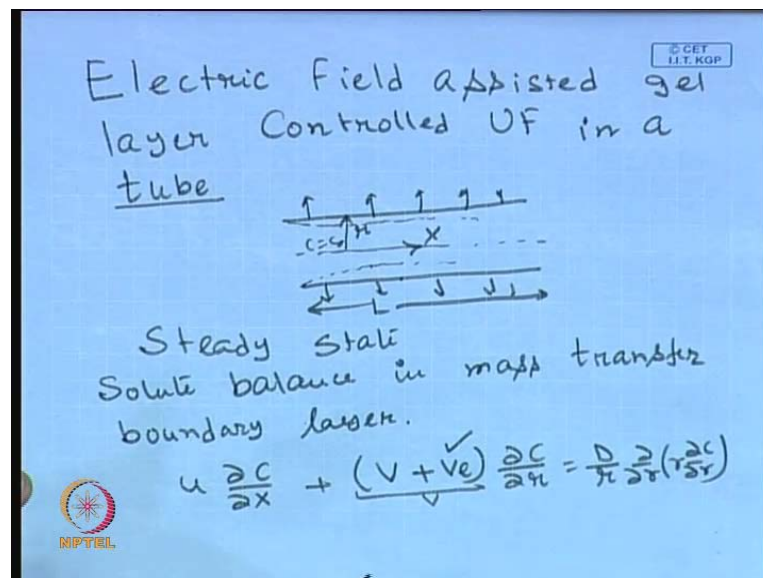 © CET
I.I.T. KGP
Electric Field assisted gel
layer Controlled UF in a
tube
r
c=c₀
x
L
Steady State
Solute balance in mass transfer
boundary layer.
u ∂C/∂x + (v + ve) ∂C/∂r = D/r ∂/∂r (r ∂C/∂r)
NPTEL